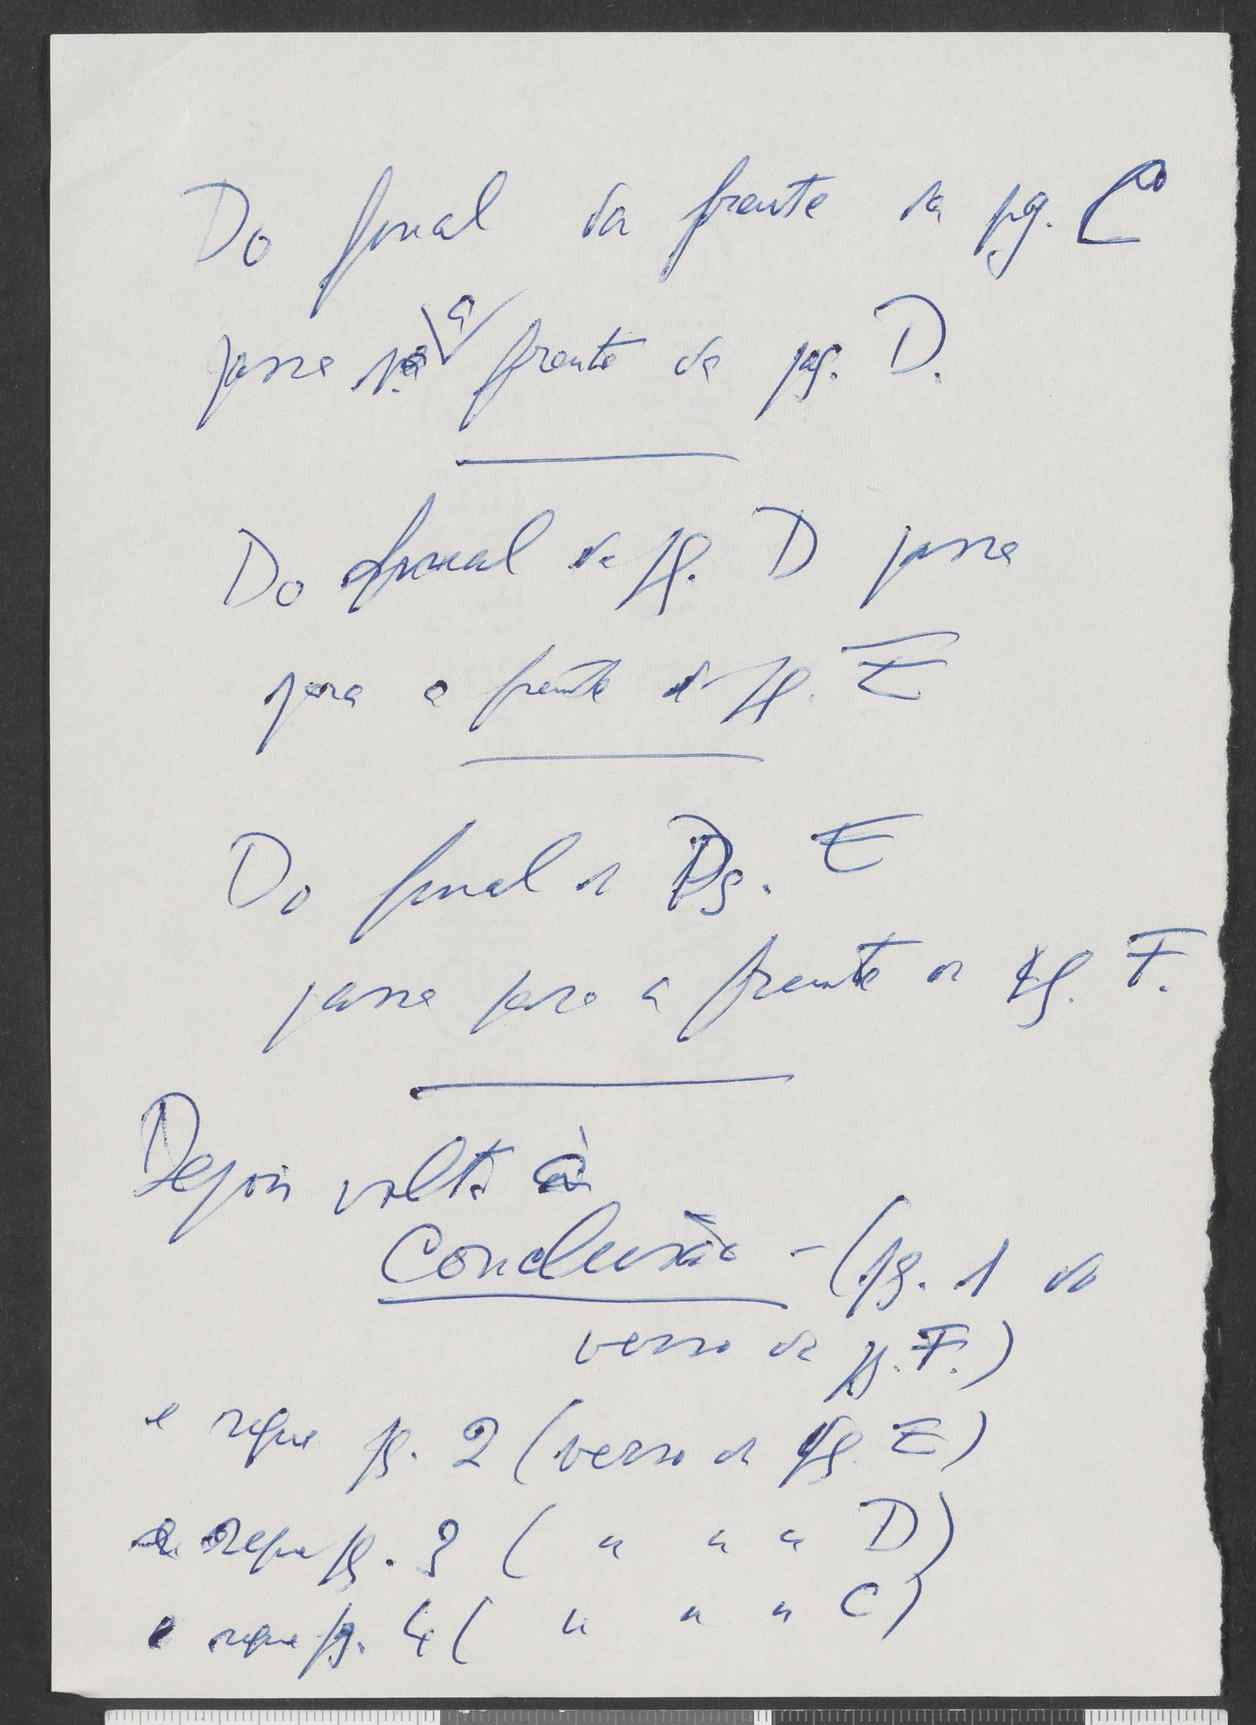 Do final da frente da pg. C
passa pª a frente da pg. D.
Do final da pg. D passa
para a frente da pg. E
Do final da Pg. E
passa para a frente da pg. F.
Depois volta à
Conclusão - (pg. 1 do
verso da pg. F.)
e segue pg. 2 (verso da pg. E)
e segue pg. 3 ( " " " D)
e segue pg. 4 ( " " " C)